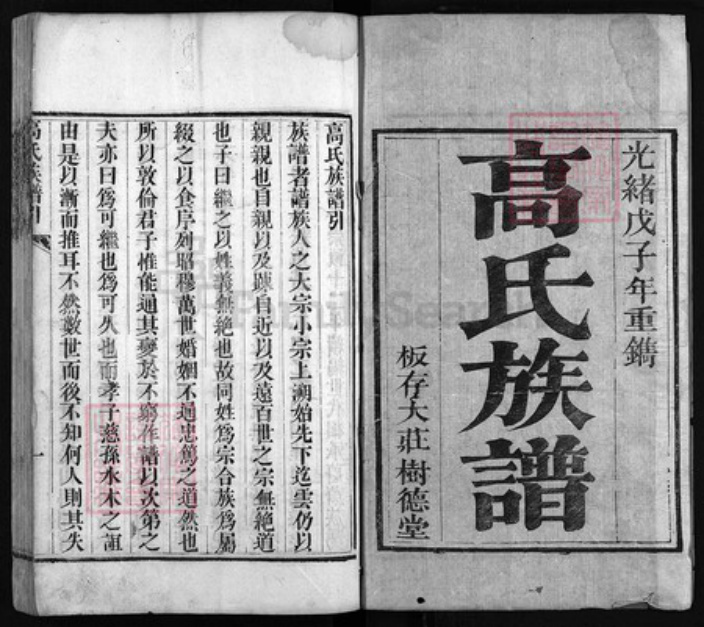 光緒戊子年重鐫
高氏族譜
板存大莊樹德堂
高氏族譜引
族譜者譜族人之大宗小宗上溯始先下迄雲仍以
親親也自親以及踈自近以及遠百世之宗無絶道
也子曰繼之以姓義無絶也故同姓爲宗合族爲屬
綴之以食序列昭穆萬世婚姻不通忠篤之道然也
所以敦倫君子惟能通其變於不窮作譜以次第之
夫亦曰爲可繼也爲可久也而孝子慈孫水木之誼
由是以漸而推耳不然數世而後不知何人則其失
高氏族譜引
一